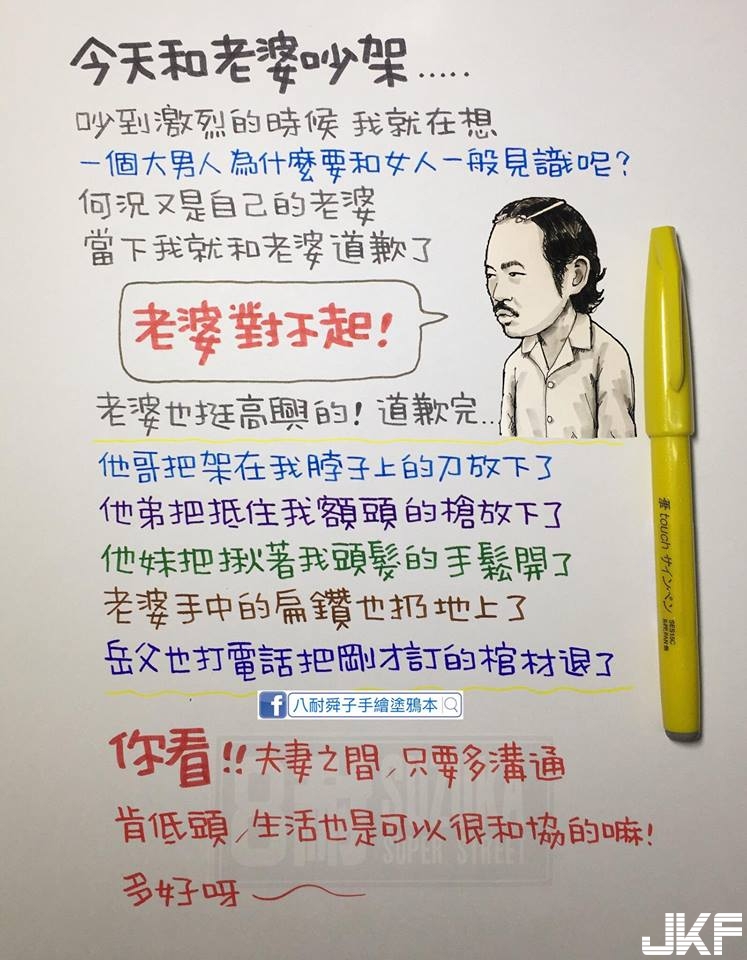 今天和老婆吵架.....
吵到激烈的時候 我就在想
一個大男人為什麼要和女人一般見識呢?
何況又是自己的老婆
當下我就和老婆道歉了
老婆對不起!
老婆也挺高興的! 道歉完..
他哥把架在我脖子上的刀放下了
他弟把抵住我額頭的槍放下了
他妹把揪著我頭髮的手鬆開了
老婆手中的扁鑽也扔地上了
岳父也打電話把剛才訂的棺材退了
八耐舜子手繪塗鴉本
你看!! 夫妻之間,只要多溝通
肯低頭,生活也是可以很和協的嘛!
多好呀
touch サインペン
SES15C
SUZUKA
SUPER STREET
JKF